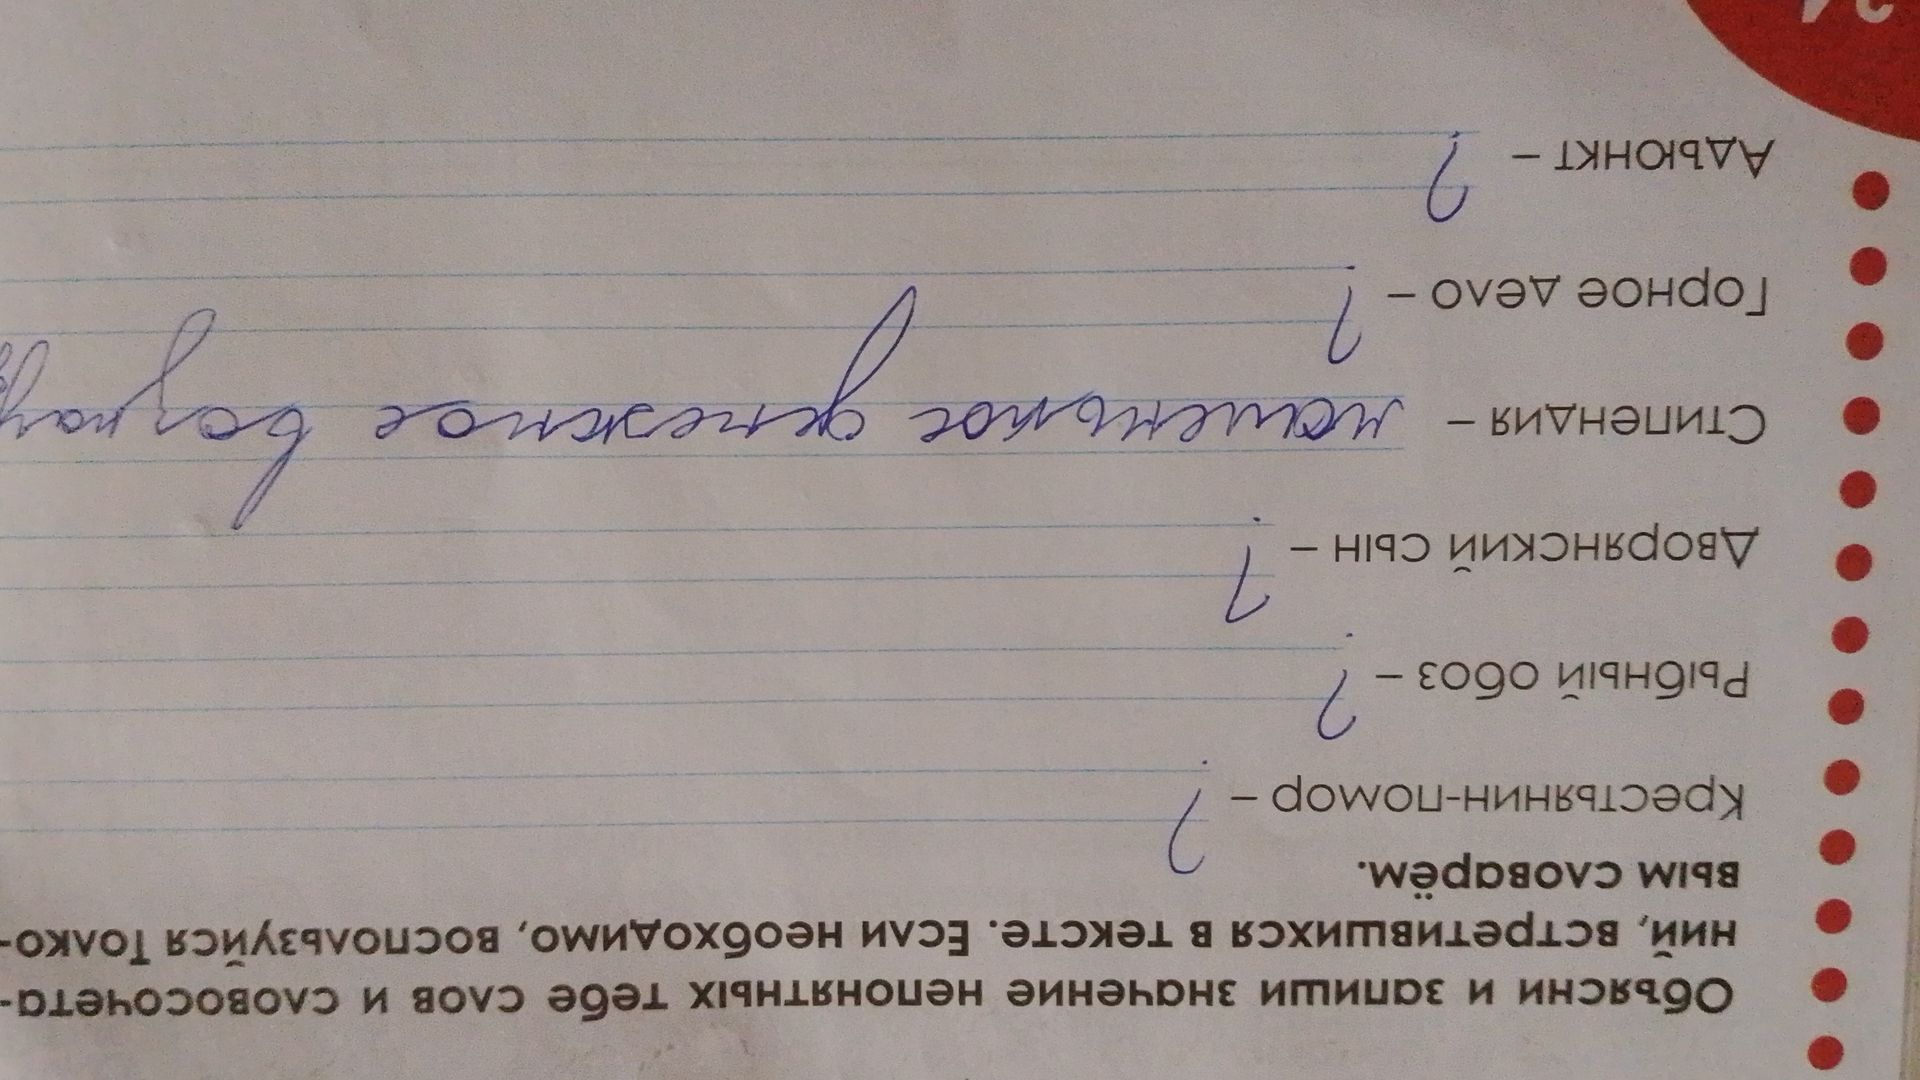 Объясни и запиши значение непонятных тебе слов и словосочета-
ний, встретившихся в тексте. Если необходимо, воспользуйся Толко-
вым словарём.
Крестьянин-помор – ?
Рыбный обоз – ?
Дворянский сын – ?
Стипендия – маленькое денежное
Горное дело – ?
Адъюнкт – ?